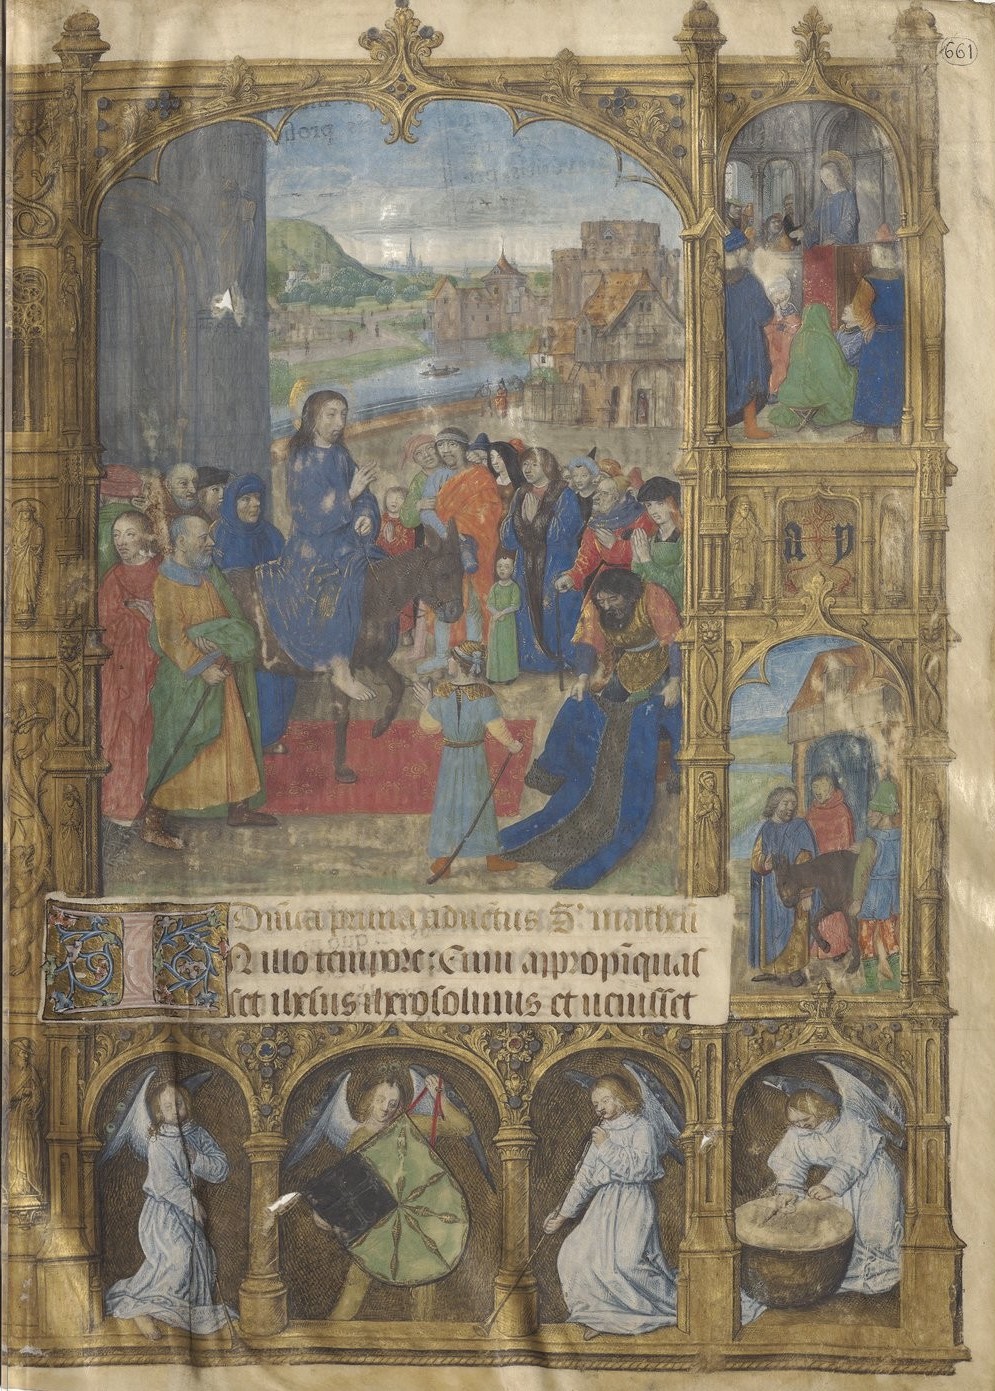 661
a p
Dñica prima aduẽtus S' mathei
In illo tempore: Cum appropĩquas
set ihesus iherosolimis et uenisset